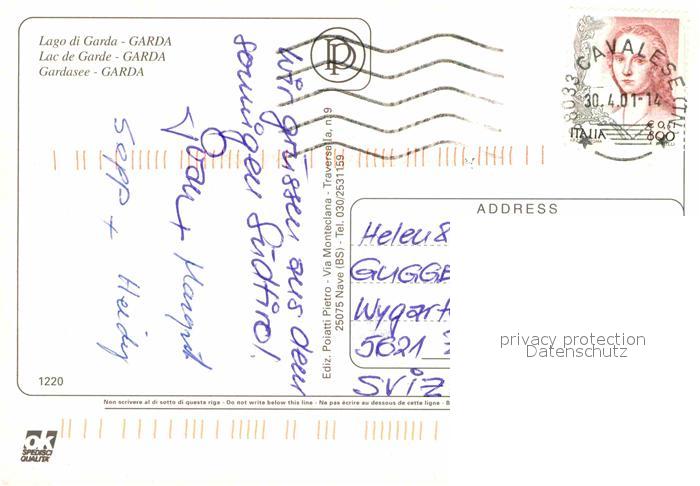 Lago di Garda - GARDA
Lac de Garde - GARDA
Gardasee - GARDA
Wir grüssen aus dem
sonnigen Südtirol!
+ Margrit
Sepp + Heidy
Ediz. Poiatti Pietro - Via Monteclana - Traversa 1a, n. 9
25075 Nave (BS) - Tel. 030/2531159
CAVALESE
30.4.01-14
ITALIA
800
ADDRESS
Helen &
GUGGE
Wygart
5621
SVIZ
privacy protection
Datenschutz
1220
Non scrivere al di sotto di questa riga - Do not write below this line - Na pas écrire au dessous de cette ligne - B
ok
SPEDISCI
QUALITÀ